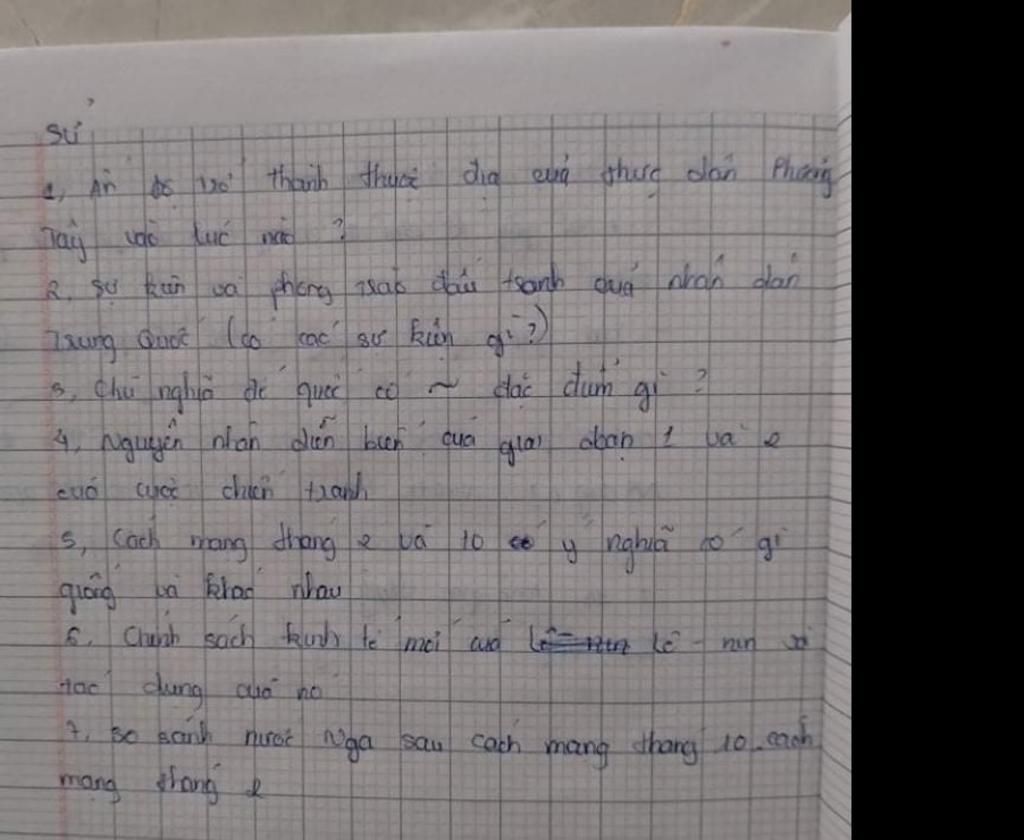 Sử
1, Ấn độ trở thành thuộc địa của thực dân Phương
Tây vào lúc nào ?
2, Sự kiện và phong trào đấu tranh của nhân dân
Trung Quốc (có các sự kiện gì ?)
3, Chủ nghĩa đế quốc có ~ đặc điểm gì ?
4, Nguyên nhân diễn biến của giai đoạn 1 và 2
của cuộc chiến tranh
5, Cách mạng tháng 2 và 10 có ý nghĩa có gì
giống và khác nhau
6, Chính sách kinh tế mới của Lê - nin và
tác dụng của nó
7, So sánh nước Nga sau cách mạng tháng 10 cách
mạng tháng 2